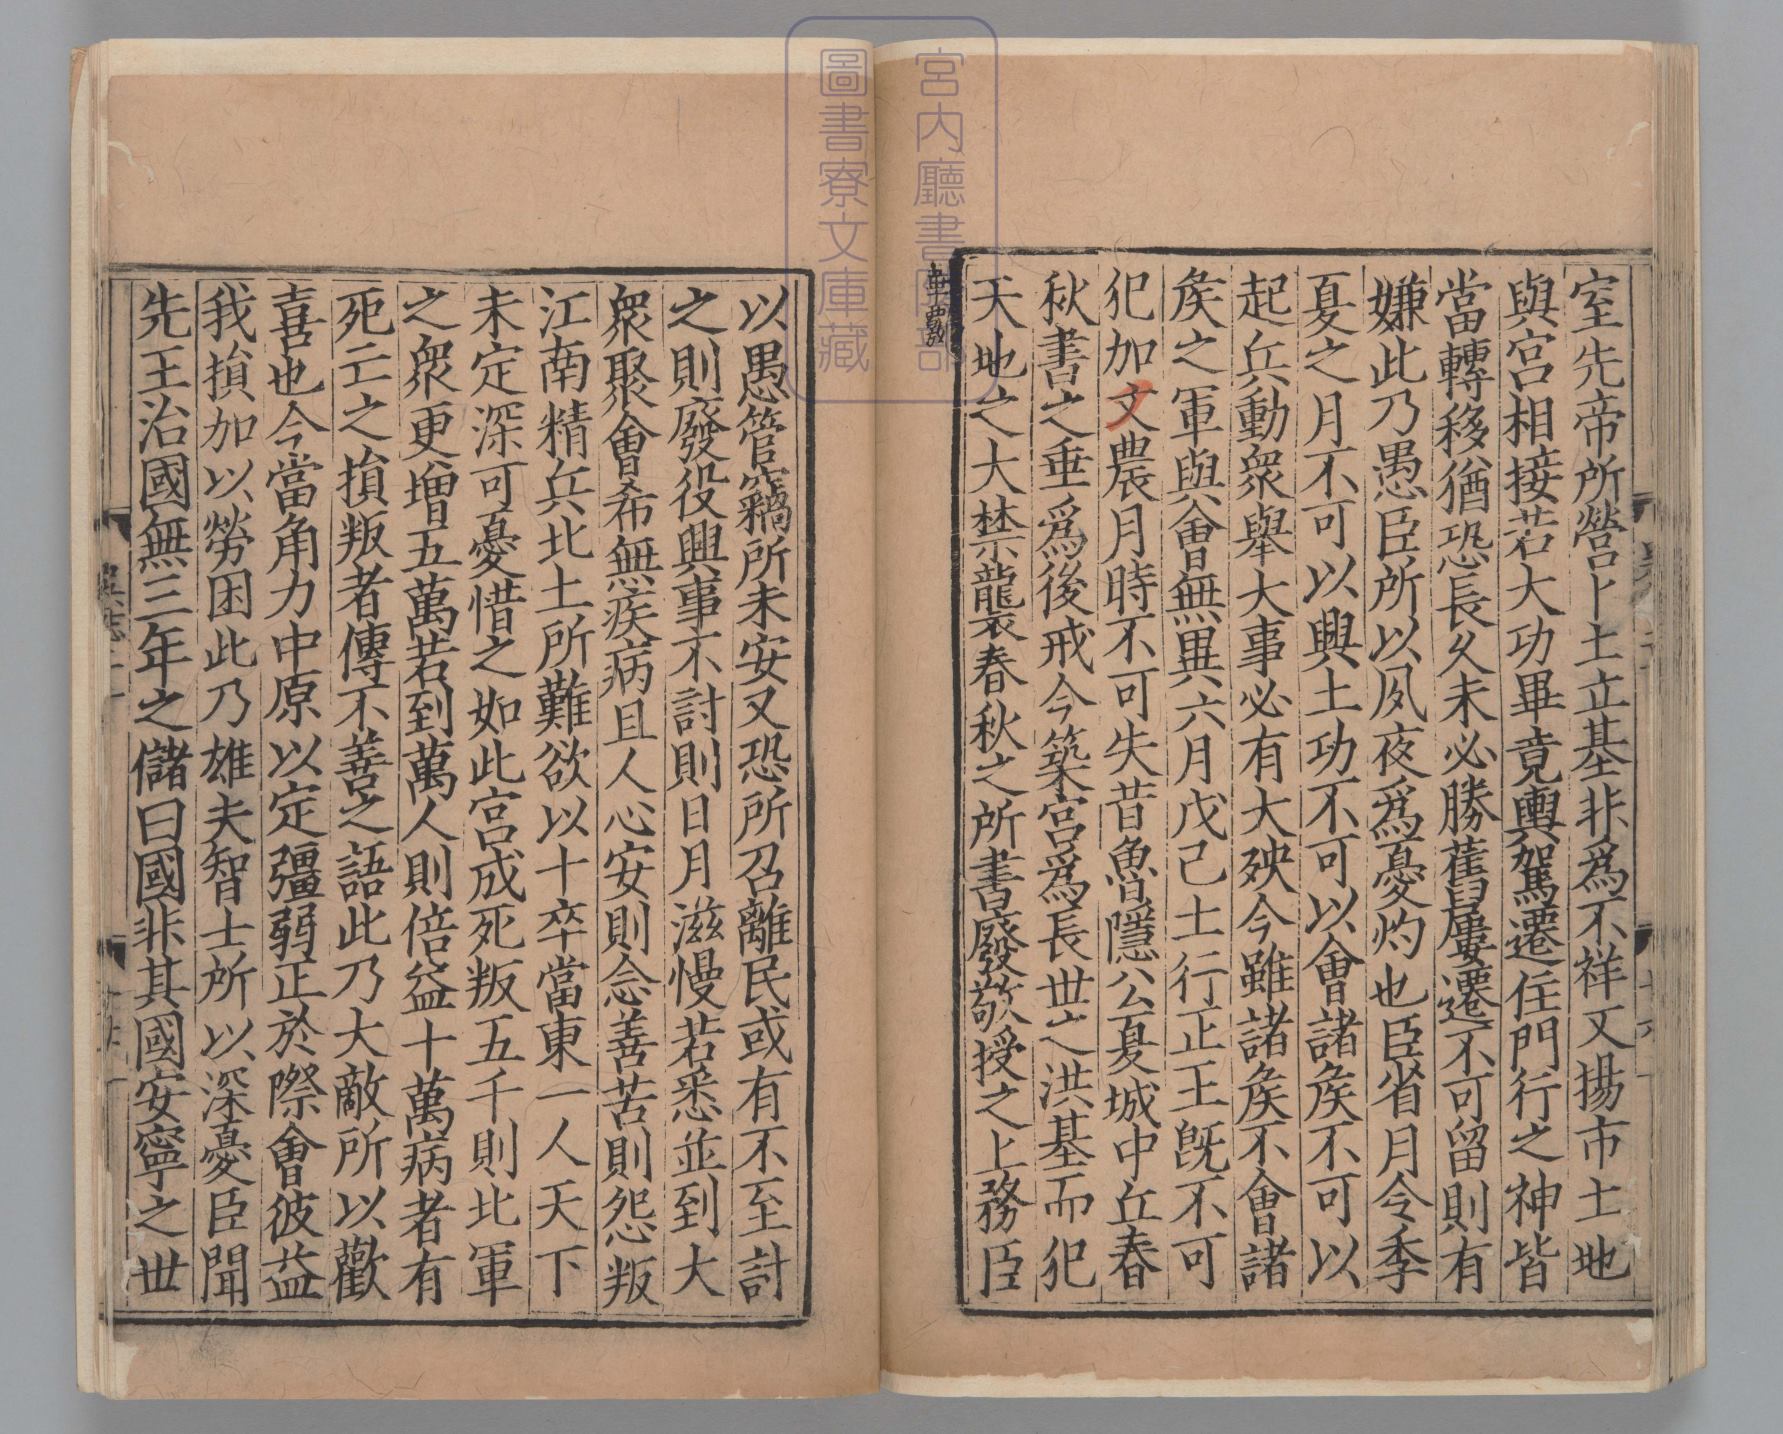 室先帝所營卜土立基非爲不祥又揚市土地
與宮相接若大功畢竟輿駕遷住門行之神皆
當轉移猶恐長久未必勝舊屢遷不可留則有
嫌此乃愚臣所以夙夜爲憂灼也臣省月令季
夏之月不可以興土功不可以會諸矦不可以
起兵動衆舉大事必有大殃今雖諸矦不會諸
矦之軍與會無異六月戊己土行正王旣不可
犯加又農月時不可失昔魯隱公夏城中丘春
秋書之垂爲後戒今築宮爲長世之洪基而犯
天地之大禁襲春秋之所書廢敬授之上務臣
以愚管竊所未安又恐所召離民或有不至討
之則廢役興事不討則日月滋慢若悉並到大
衆聚會希無疾病且人心安則念善苦則怨叛
江南精兵北土所難欲以十卒當東一人天下
未定深可憂惜之如此宮成死叛五千則北軍
之衆更增五萬若到萬人則倍益十萬病者有
死亡之損叛者傳不善之語此乃大敵所以歡
喜也今當角力中原以定彊弱正於際會彼益
我損加以勞困此乃雄夫智士所以深憂臣聞
先王治國無三年之儲曰國非其國安寧之世
宮内廳書陵部
圖書寮文庫藏